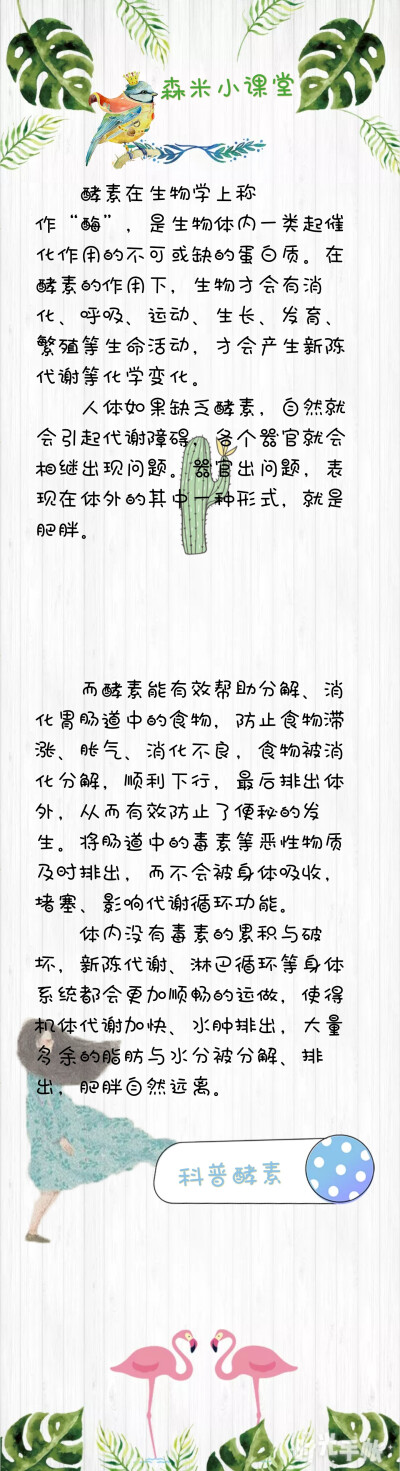 森米小课堂
酵素在生物学上称
作“酶”，是生物体内一类起催
化作用的不可或缺的蛋白质。在
酵素的作用下，生物才会有消
化、呼吸、运动、生长、发育、
繁殖等生命活动，才会产生新陈
代谢等化学变化。
人体如果缺乏酵素，自然就
会引起代谢障碍，各个器官就会
相继出现问题。器官出问题，表
现在体外的其中一种形式，就是
肥胖。
而酵素能有效帮助分解、消
化胃肠道中的食物，防止食物滞
涨、胀气、消化不良，食物被消
化分解，顺利下行，最后排出体
外，从而有效防止了便秘的发
生。将肠道中的毒素等恶性物质
及时排出，而不会被身体吸收，
堵塞、影响代谢循环功能。
体内没有毒素的累积与破
坏，新陈代谢、淋巴循环等身体
系统都会更加顺畅的运做，使得
机体代谢加快、水肿排出，大量
多余的脂肪与水分被分解、排
出，肥胖自然远离。
科普酵素